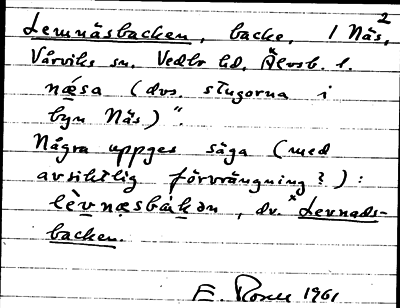 2
Lemnäsbacken, backe, 1 Näs,
Vårviks sn. Vedbo hd, Älvsb. l.
næ̀sa (dvs. stugorna i
byn Näs)".
Några uppges säga (med
avsiktlig förvrängning?):
lèvnæsbàkən, dv. *Levnads-
backen.
E. 1961